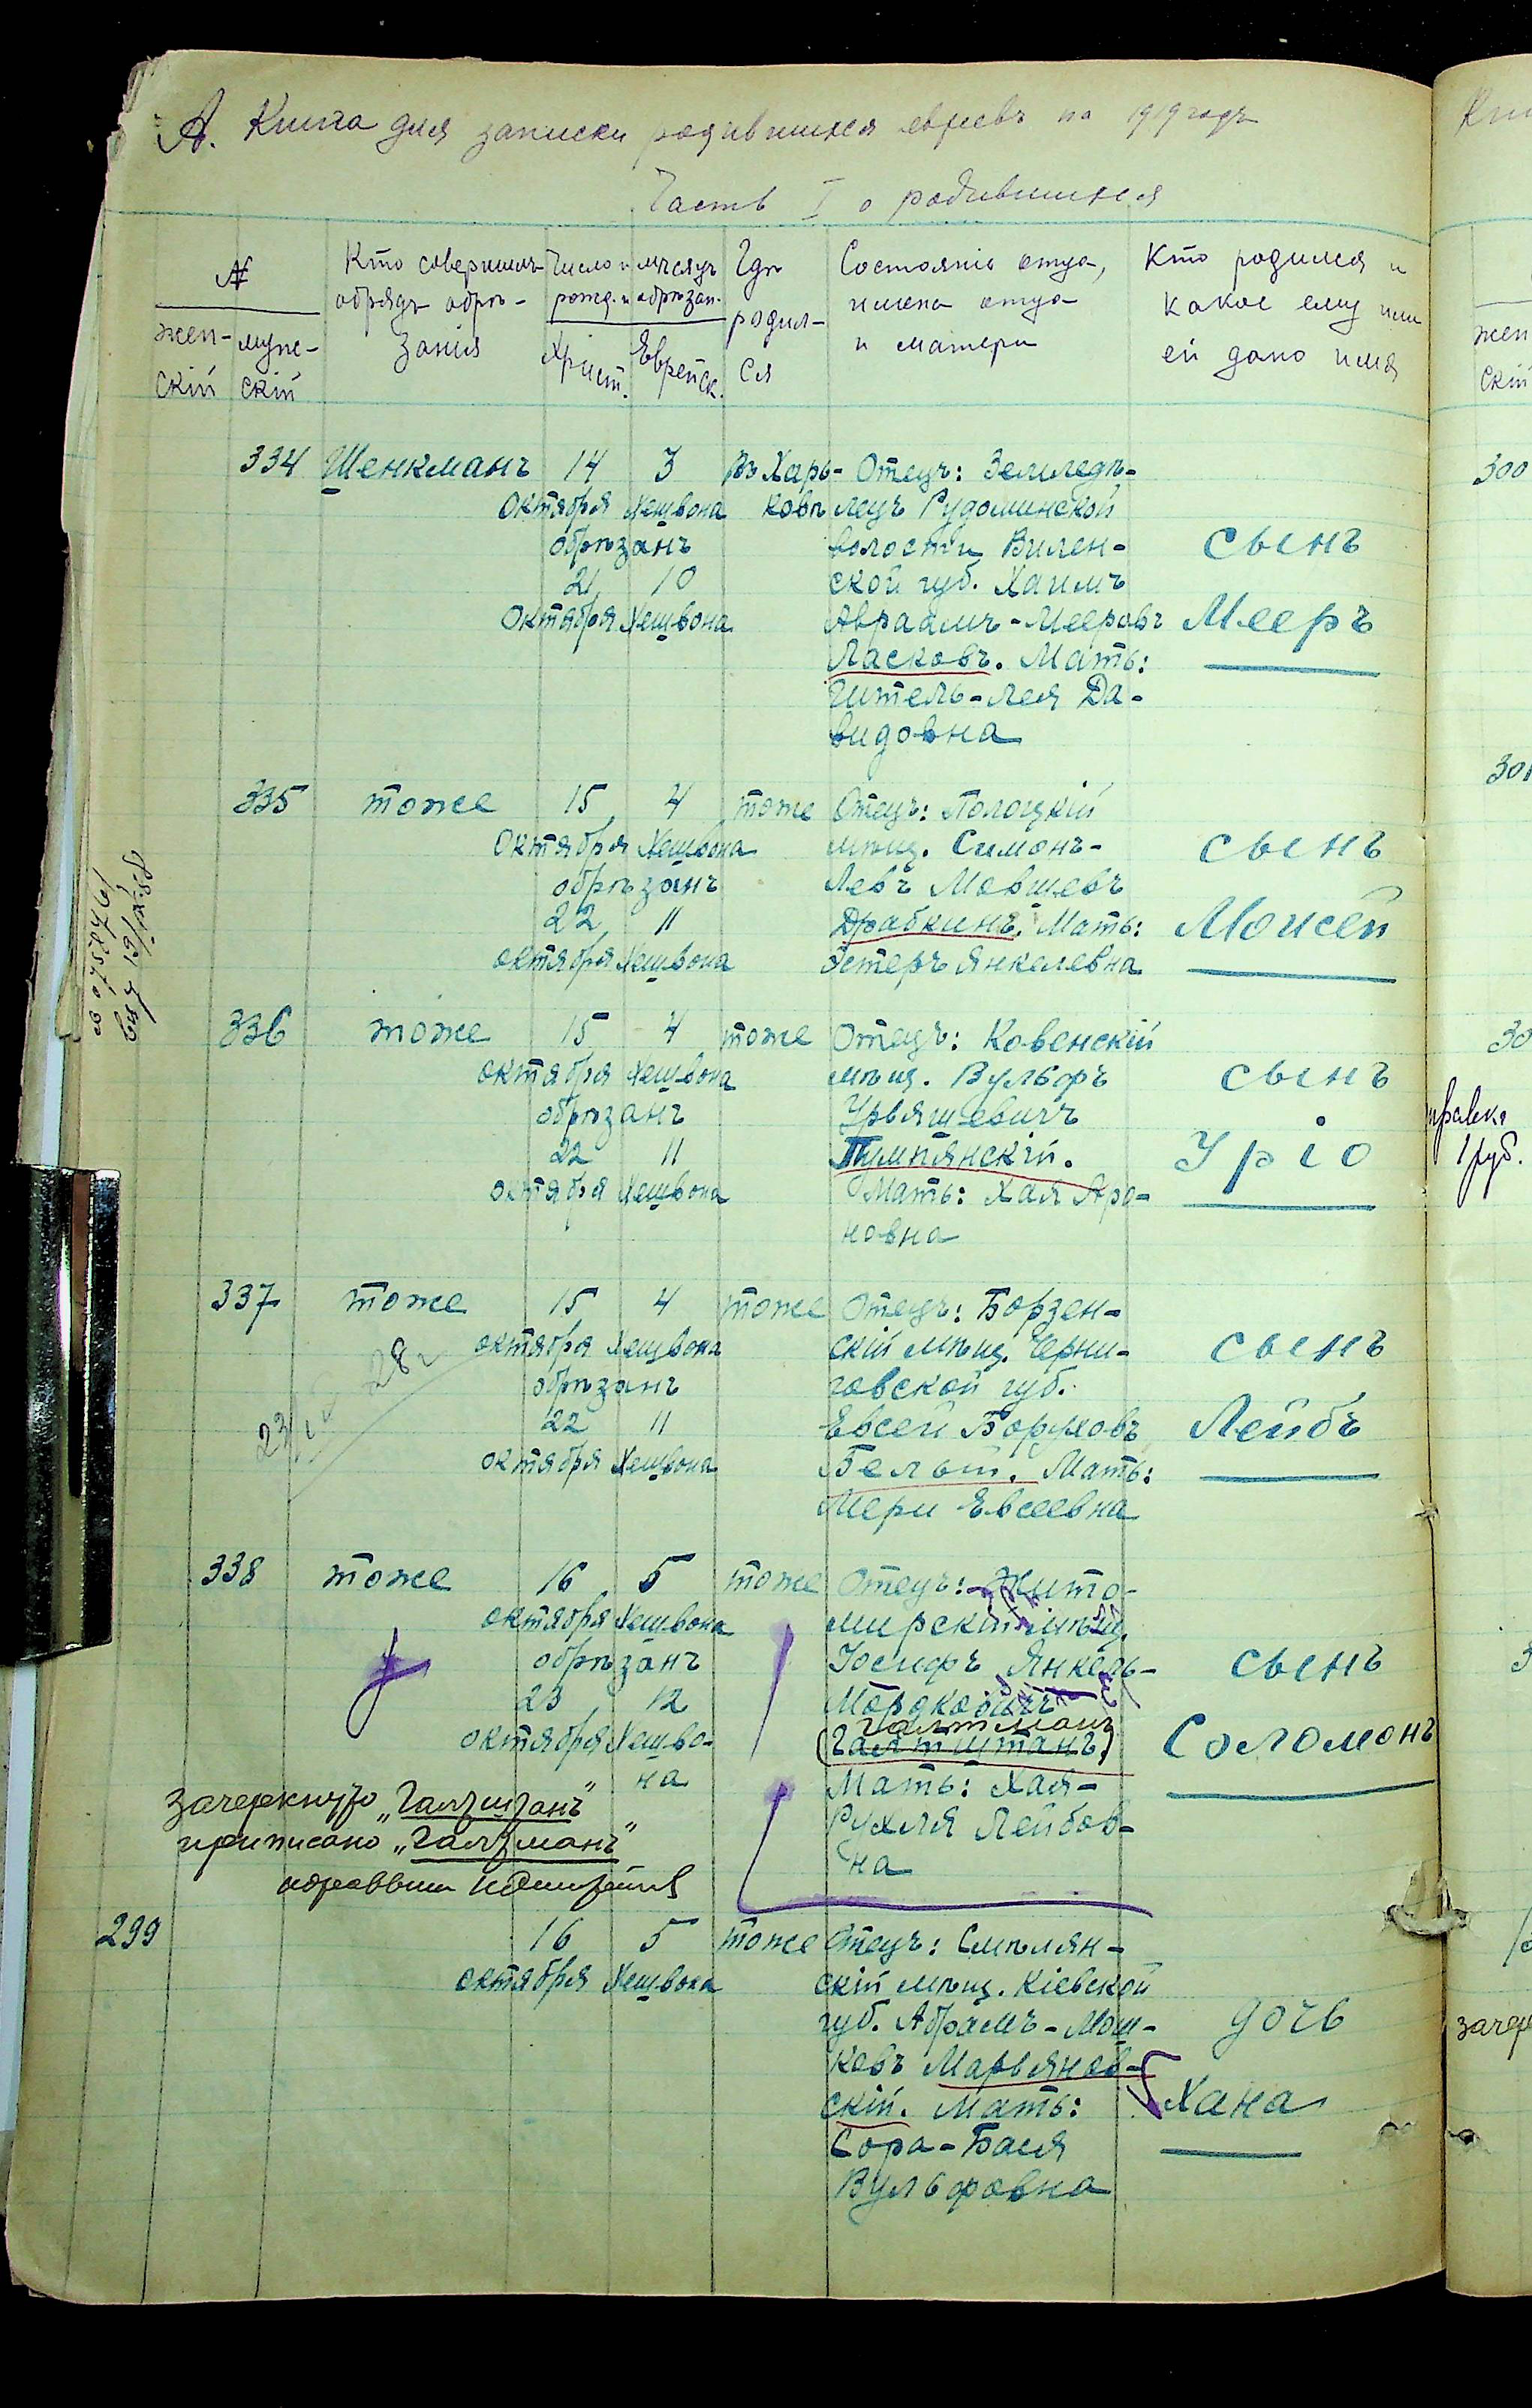 А. Книга для записки родившихся евреевъ на 1919 годъ
Часть I о родившихся
№
жен-
скій
муж-
скій
Кто совершилъ
обрядъ обрѣ-
занія
Число и мѣсяцъ
рожд. и обрѣзан.
Христ.
Еврейск.
Гдѣ
родил-
ся
Состояніе отца,
имена отца
и матери
Кто родился и
какое ему или
ей дано имя
334 Шенкманъ 14 3 Въ Харь- Отецъ: Земледѣ-
Октября Хешвона ковѣ лецъ Рудоминской
обрѣзанъ волости Вилен- сынъ
21 10 ской губ. Хаимъ
Октября Хешвона Авраамъ-Мееровъ Мееръ
Ласковъ. Мать:
Гитель-Лея Да-
видовна
335 тоже 15 4 тоже Отецъ: Полоцкій
Октября Хешвона мѣщ. Симонъ- сынъ
обрѣзанъ Левъ Мовшевъ
22 11 Драбкинъ. Мать: Моисей
октября Хешвона Эстеръ Янкелевна
336 тоже 15 4 тоже Отецъ: Ковенскій
октября Хешвона мѣщ. Вульфъ сынъ
обрѣзанъ Урьяшевичъ
22 11 Пумпянскій. Уріо
октября Хешвона Мать: Хая Аро-
новна
337 тоже 15 4 тоже Отецъ: Борзен-
октября Хешвона скій мѣщ. Черни- сынъ
обрѣзанъ говской губ.
22 11 Евсей Боруховъ Лейбъ
октября Хешвона Белый. Мать:
Мери Евсеевна
338 тоже 16 5 тоже Отецъ: Жито-
октября Хешвона мирскій мѣщ.
обрѣзанъ Іосифъ Янкель- сынъ
23 12 Мордковичъ
Галтманъ
октября Хешво- (Галтштанъ) Соломонъ
на Мать: Хая-
Рухля Лейбов-
на
зачеркнуто „Галтштанъ"
приписано „Галтманъ"
299 16 5 тоже Отецъ: Смѣлян-
октября Хешвона скій мѣщ. Кіевской
губ. Абрамъ-Мош- дочь
ковъ Марьянов-
скій. Мать: Хана
Сора-Бася
Вульфовна
300
301
1 руб.